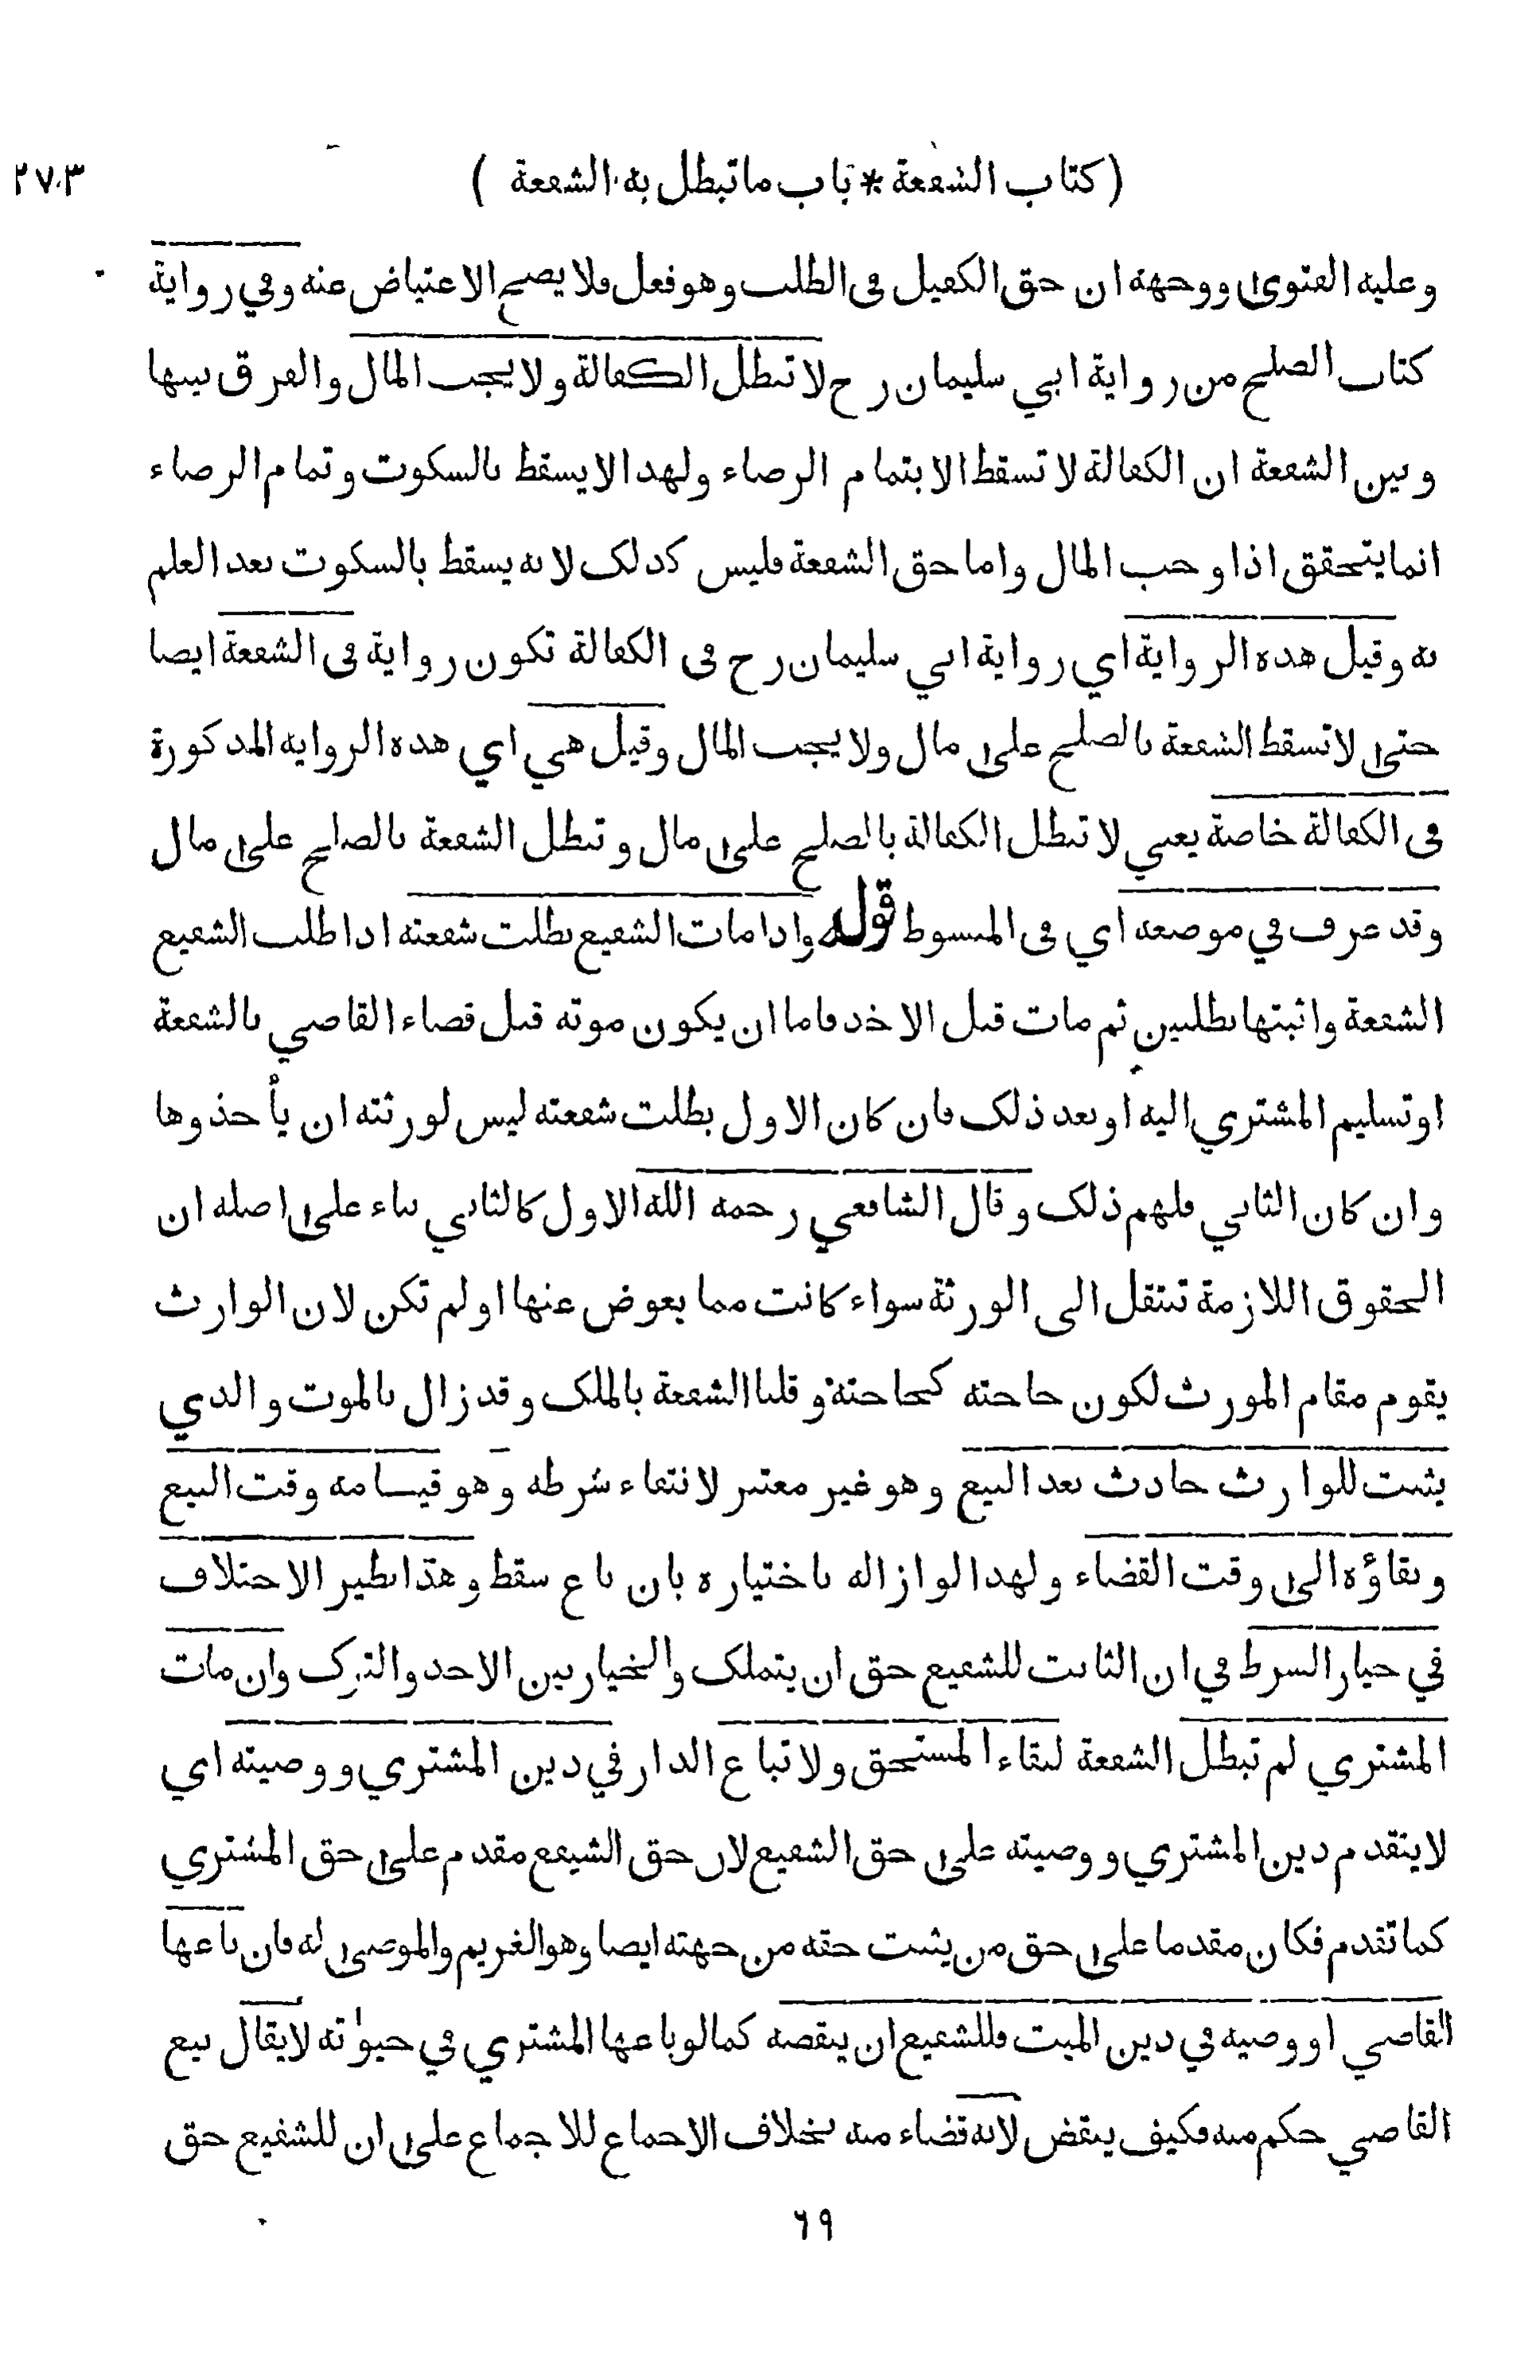 ( كتاب الشفعة * باب ما تبطل به الشفعة ) ٢٧٣
وعليه الفتوى ووجهه ان حق الكفيل فى الطلب وهو فعل فلا يصح الاعتياض عنه وفي رواية
كتاب الصلح من رواية ابي سليمان رح لا تبطل الكفالة ولا يجب المال والفرق بينها
وبين الشفعة ان الكفالة لا تسقط الا بتمام الرضاء ولهذا لا يسقط بالسكوت وتمام الرضاء
انما يتحقق اذا وجب المال واما حق الشفعة فليس كذلك لانه يسقط بالسكوت بعد العلم
به وقيل هذه الرواية اي رواية ابي سليمان رح فى الكفالة تكون رواية فى الشفعة ايضا
حتى لا تسقط الشفعة بالصلح على مال ولا يجب المال وقيل هي اي هذه الرواية المذكورة
فى الكفالة خاصة يعني لا تبطل الكفالة بالصلح على مال وتبطل الشفعة بالصلح على مال
وقد عرف في موضعه اي فى المبسوط قوله واذا مات الشفيع بطلت شفعته اذا طلب الشفيع
الشفعة واثبتها بطلبين ثم مات قبل الاخذ فاما ان يكون موته قبل قضاء القاضي بالشفعة
او تسليم المشتري اليه او بعد ذلك فان كان الاول بطلت شفعته ليس لورثته ان يأخذوها
وان كان الثاني فلهم ذلك وقال الشافعي رحمه الله الاول كالثاني بناء على اصله ان
الحقوق اللازمة تنتقل الى الورثة سواء كانت مما يعوض عنها او لم تكن لان الوارث
يقوم مقام المورث لكون حاجته كحاجته وقلنا الشفعة بالملك وقد زال بالموت والذي
يثبت للوارث حادث بعد البيع وهو غير معتبر لانتفاء شرطه وهو قيامه وقت البيع
وبقاؤه الى وقت القضاء ولهذا لو ازاله باختياره بان باع سقط وهذا نظير الاختلاف
في خيار الشرط في ان الثابت للشفيع حق ان يتملك والخيار بين الاخذ والترك وان مات
المشتري لم تبطل الشفعة لبقاء المستحق ولا تباع الدار في دين المشتري ووصيته اي
لا يتقدم دين المشتري ووصيته على حق الشفيع لان حق الشفيع مقدم على حق المشتري
كما تقدم فكان مقدما على حق من يثبت حقه من جهته ايضا وهو الغريم والموصى له فان باعها
القاضي او وصيه في دين الميت فللشفيع ان ينقضه كما لو باعها المشتري في حيوٰته لا يقال بيع
القاضي حكم منه فكيف ينقض لانه قضاء منه بخلاف الاجماع للاجماع على ان للشفيع حق
٦٩